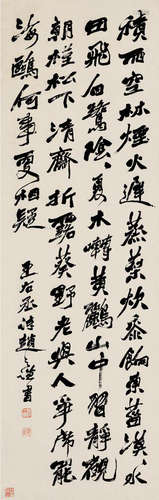 積雨空林煙火遲蒸藜炊黍餉東菑漠〻水
田飛白鷺陰〻夏木囀黃鸝山中習靜觀
朝槿松下清齋折露葵野老與人爭席罷
海鷗何事更相疑
王右丞詩趙熙書